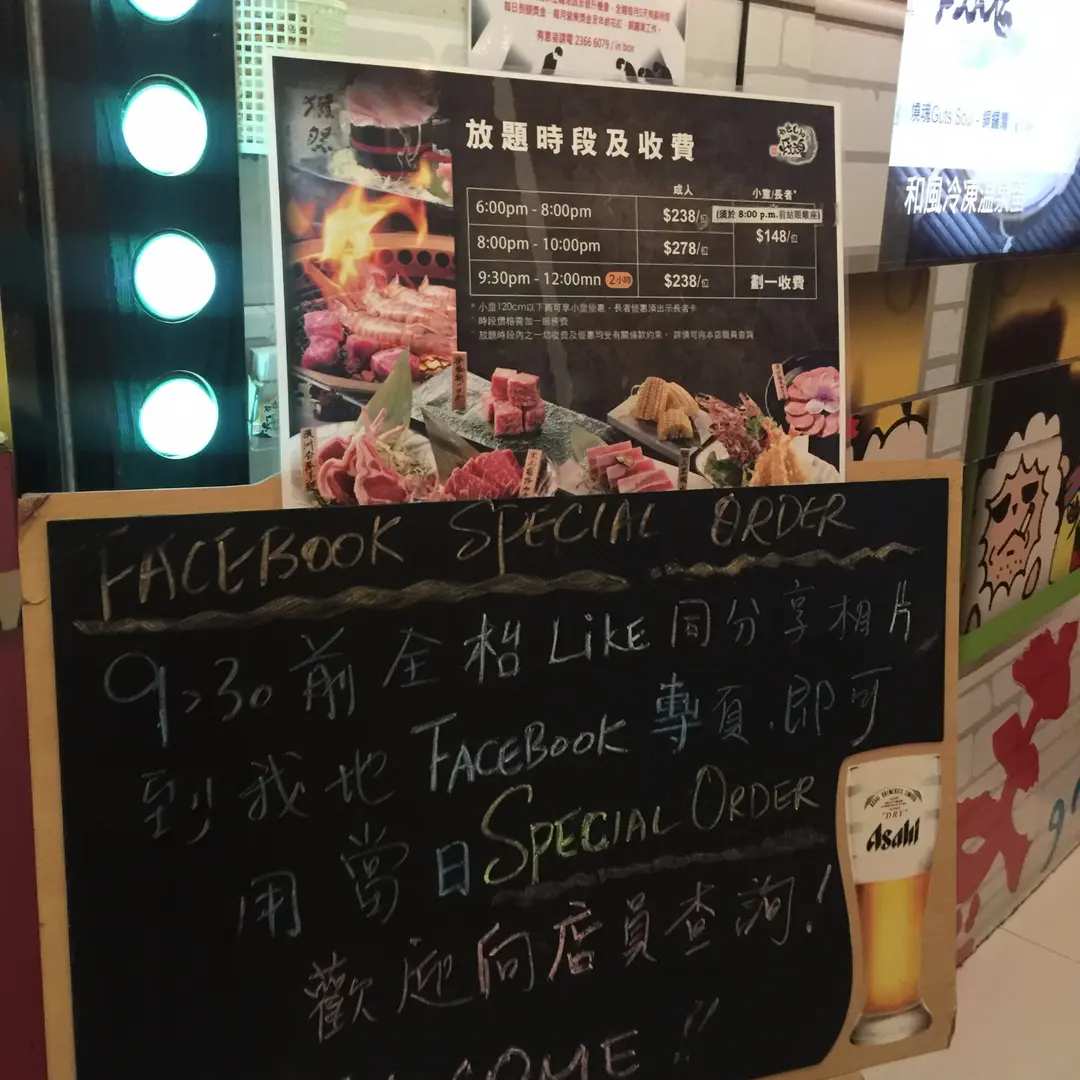 每日到額獎金、每月營業獎金及年終花紅、銅鑼灣工作。
有意者請電 2366 6079 / in box
放題時段及收費
成人
小童/長者*
6:00pm - 8:00pm
$238/位
(須於 8:00 p.m.前結賬離座)
$148/位
8:00pm - 10:00pm
$278/位
9:30pm - 12:00mn 2小時
$238/位
劃一收費
* 小童120cm以下高可享小童優惠，長者優惠須出示長者卡
時段價格需加一服務費
放題時段內之一切收費及優惠均受有關條款約束，詳情可向本店職員查詢
燒魂Guts Soul - 銅鑼灣
和風冷凍溫泉蛋
FACEBOOK SPECIAL ORDER
9:30前全枱LIKE同分享相片
到我地FACEBOOK專頁，即可
用當日SPECIAL ORDER
歡迎向店員查詢!
COME!!
"DRY"
Asahi